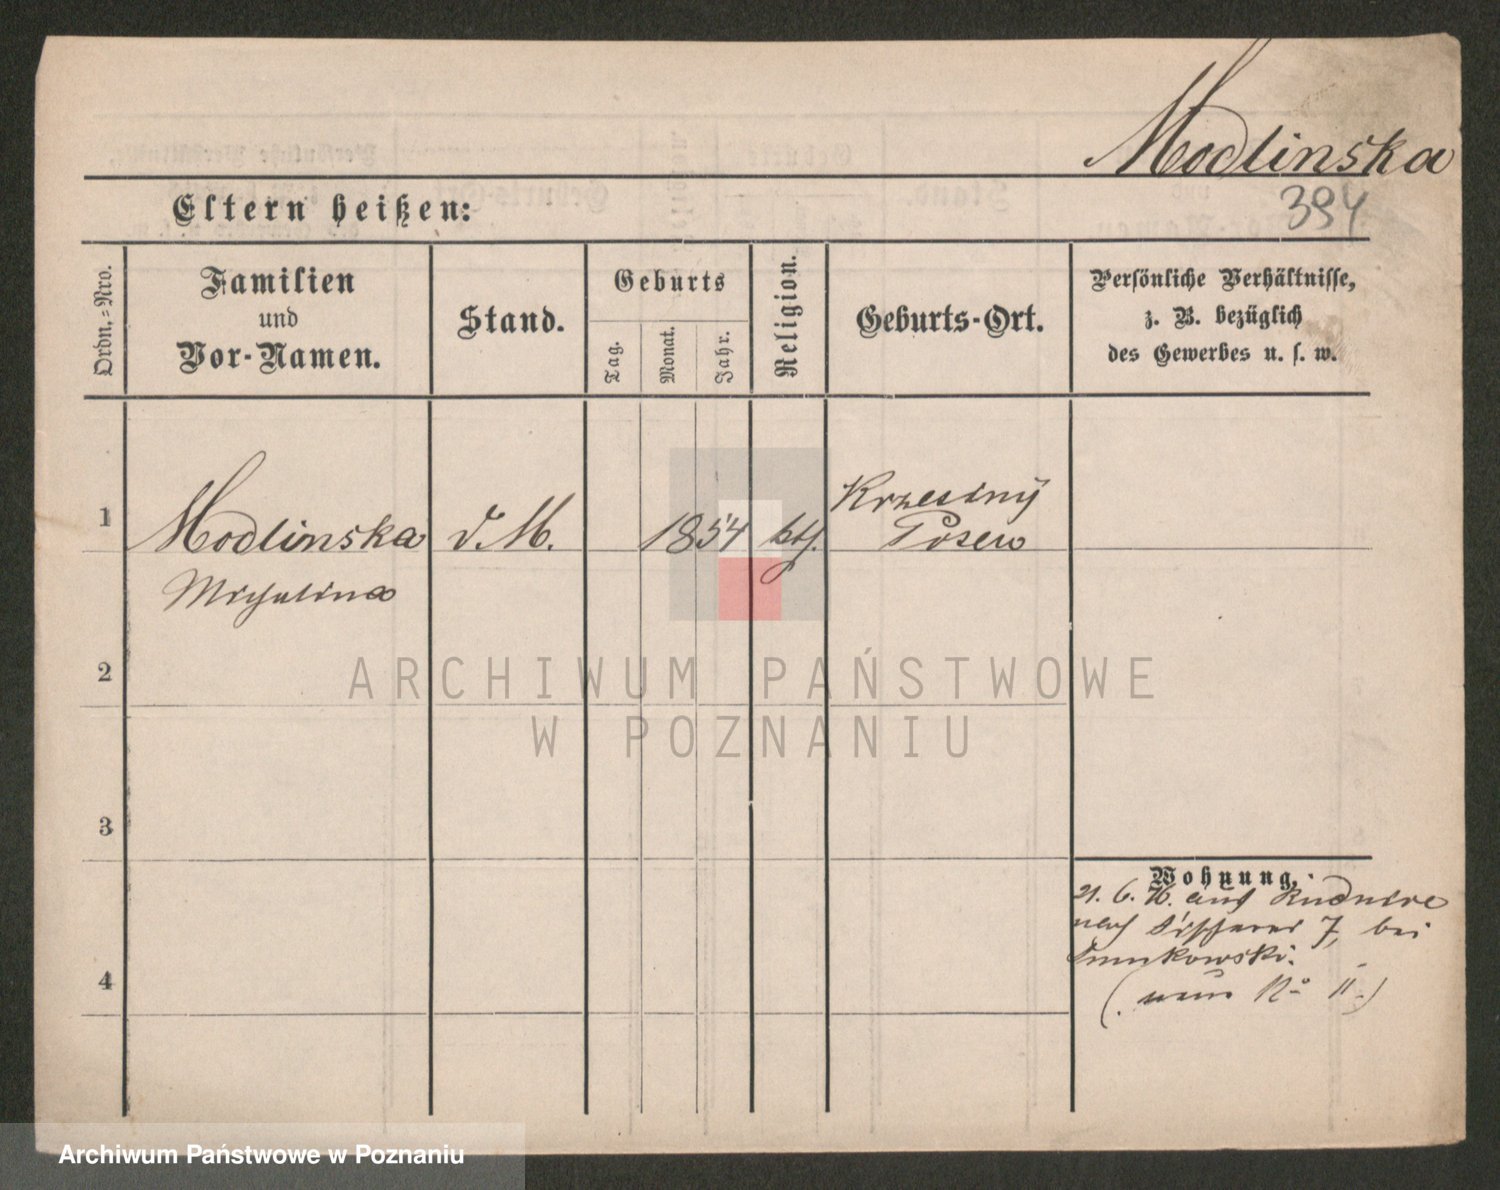 Modlinska
394
Eltern heißen:
Ordn.=Nro.
Familien
und
Vor-Namen.
Stand.
Geburts
Tag.
Monat.
Jahr.
Religion.
Geburts-Ort.
Persönliche Verhältnisse,
z. B. bezüglich
des Gewerbes u. s. w.
1
Modlinska
d. M.
1854
kth.
Krzesiny
Posen
Michalina
2
3
4
Wohnung.
21. 6. 76. aus
nach 7, bei
(nun No 11.)
ARCHIWUM PAŃSTWOWE
W POZNANIU
Archiwum Państwowe w Poznaniu